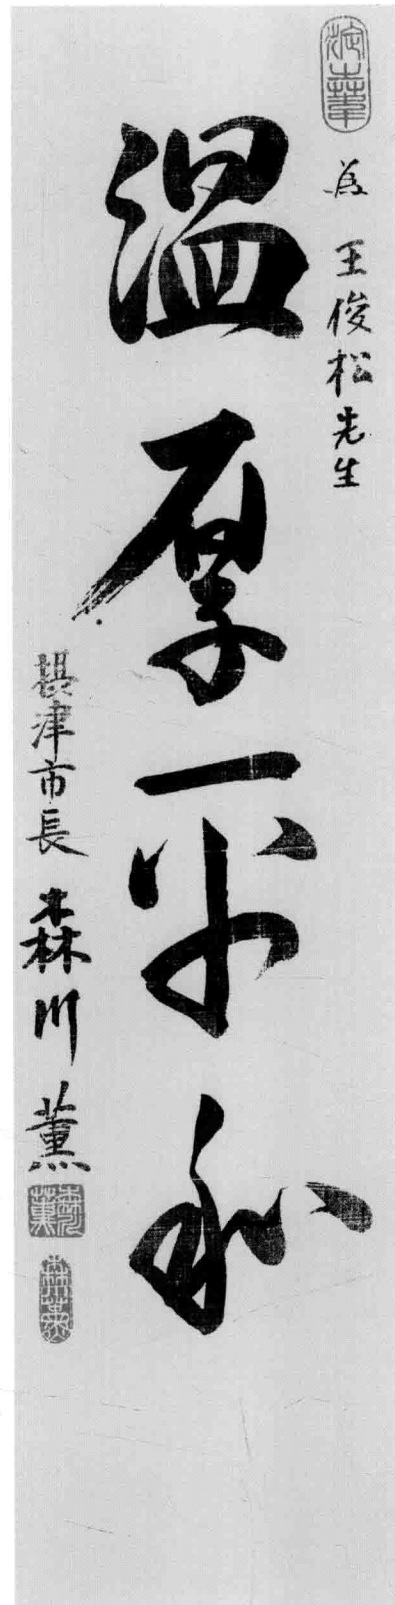 為 王俊松先生
温厚平和
摂津市長 森川 薫